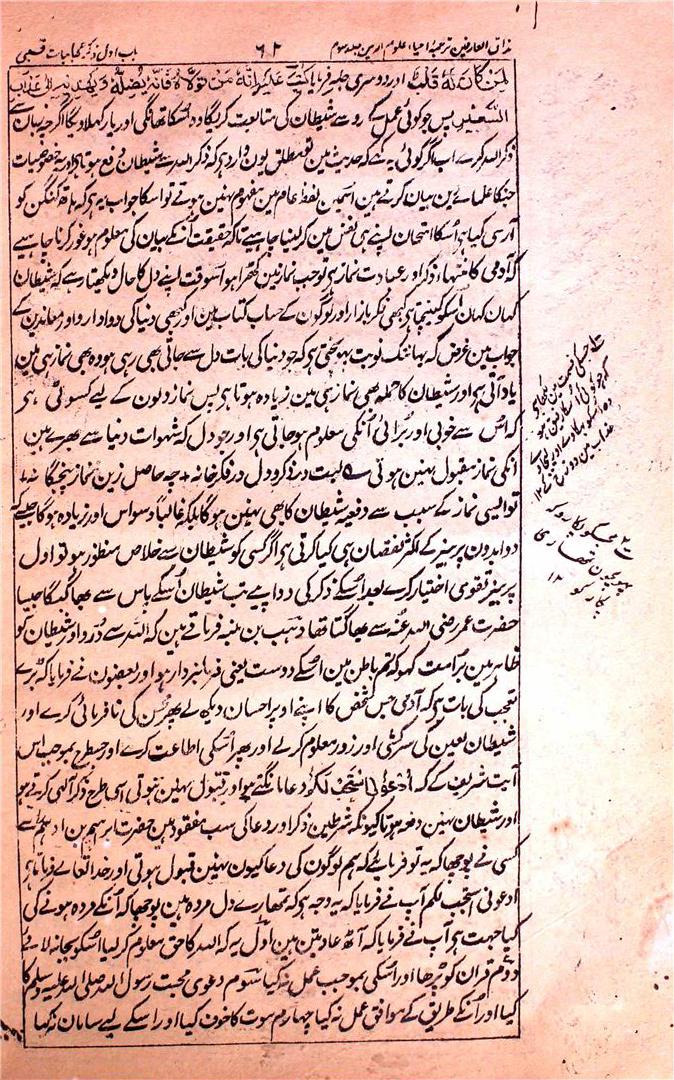 مذاق العارفین ترجمۂ احیاء علوم الدین جلد سوم
۶۲
باب اول ذکر عجائبات قلبی
لمن کان لہ قلب اور دوسری جگہ فرمایا کتب علیہ انہ من تولاہ فانہ یضلہ ویہدیہ الی عذاب
السعیر پس جو کوئی عمل کے رو سے شیطان کی متابعت کریگا وہ اسکا ساتھی اور یار کہلاویگا اگرچہ زبان سے
ذکر اللہ کرے اب اگر کوئی یہ کہے کہ حدیث مین تو مطلق یون وارد ہی کہ ذکر اللہ سے شیطان دفع ہوتا ہی اور یہ خصوصیات
جنکا علماے دین بیان کرتے ہین اسمین لفظ عام مین مفہوم نہین ہوتے تو اسکا جواب یہ ہی کہ ہاتھ کنگن کو
آرسی کیا ہی اسکا امتحان اپنے ہی نفس مین کرلینا چاہیے تاکہ حقیقت انکے بیان کی معلوم ہو غور کرنا چاہیے
کہ آدمی کا منتہاے ذکر اور عبادت نماز ہی تو جب نماز مین کھڑا ہو اسوقت اپنے دل کا حال دیکھتا رہے کہ شیطان
کہان کہان اسکو کھینچتا ہی کبھی فکر بازار اور لوگون کے حساب کتاب مین اور کبھی دنیا کی دوا دارو اور معاندین کے
جواب مین غرض کہ یہانتک نوبت پہونچتی ہی کہ جو دنیا کی بات دل سے جاتی بھی رہی ہو وہ بھی نماز ہی مین
یاد آتی ہی اور شیطان کا حملہ بھی نماز ہی مین زیادہ ہوتا ہی پس نماز دلون کے لیے کسوٹی ہی
کہ اس سے خوبی اور برائی انکی معلوم ہوجاتی ہی اور جو دل کہ شہوات دنیا سے بھرے ہین
انکی نماز مقبول نہین ہوتی بہ لبت در ذکر و دل در فکر خانہ + چہ حاصل زین نماز پنجگانہ
تو ایسی نماز کے سبب سے دفعیہ شیطان کا بھی نہین ہوگا بلکہ غالباً وسواس اور زیادہ ہوگا جیسے کہ
دوا بدون پرہیز کے اکثر نقصان ہی کیا کرتی ہی اگر کسی کو شیطان سے خلاص منظور ہو تو اول
پرہیز تقوی اختیار کرے بعد اسکے ذکر کی دوا پیے تب شیطان اسکے پاس سے بھاگیگا جیسا
حضرت عمر رضی اللہ عنہ سے بھاگتا تھا وہب بن منبہ فرماتے ہین کہ اللہ سے ڈرو اور شیطان کو
ظاہر مین برا مت کہو کہ تم باطن مین اسکے دوست یعنی فرمانبردار ہو اور بعضون نے فرمایا کہ بڑے
تعجب کی بات ہی کہ آدمی جس شخص کا اپنے اوپر احسان دیکھ لے پھر اسکی نافرمانی کرے اور
شیطان لعین کی سرکشی اور زور معلوم کرلے اور پھر اسکی اطاعت کرے اور جسطرح بموجب اس
آیت شریف کے کہ ادعونی استجب لکم دعا مانگتے ہو اور قبول نہین ہوتی اسی طرح ذکر الٰہی کرتے ہو
اور شیطان نہین دفع ہوتا کیونکہ شرطین ذکر اور دعا کی سب مفقود ہین حضرت ابراہیم بن ادہم سے
کسی نے پوچھا کہ یہ تو فرمایئے کہ ہم لوگون کی دعا کیون نہین قبول ہوتی اور خدا تعالے فرماتا ہی
ادعونی استجب لکم آپ نے فرمایا کہ یہ وجہ ہی کہ تمھارے دل مردہ ہین پوچھا کہ انکے مردہ ہونے کی
کیا جہت ہی آپ نے فرمایا کہ آٹھ عادتین ہین اول یہ کہ اللہ کا حق معلوم کرلیا اسکو بجا نہ لائے
دوم قران کو پڑھا اور اسکی بموجب عمل نہ کیا سوم دعوی محبت رسول اللہ صلی اللہ علیہ وسلم کا
کیا اور انکے طریق کے موافق عمل نہ کیا چہارم موت کا خوف کیا اور اسکے لیے سامان نہ کیا
عذاب مین دوزخ کے ۱۲
مجکو پکارو کہ
پہونچون تمھاری
پکار کو ۱۲